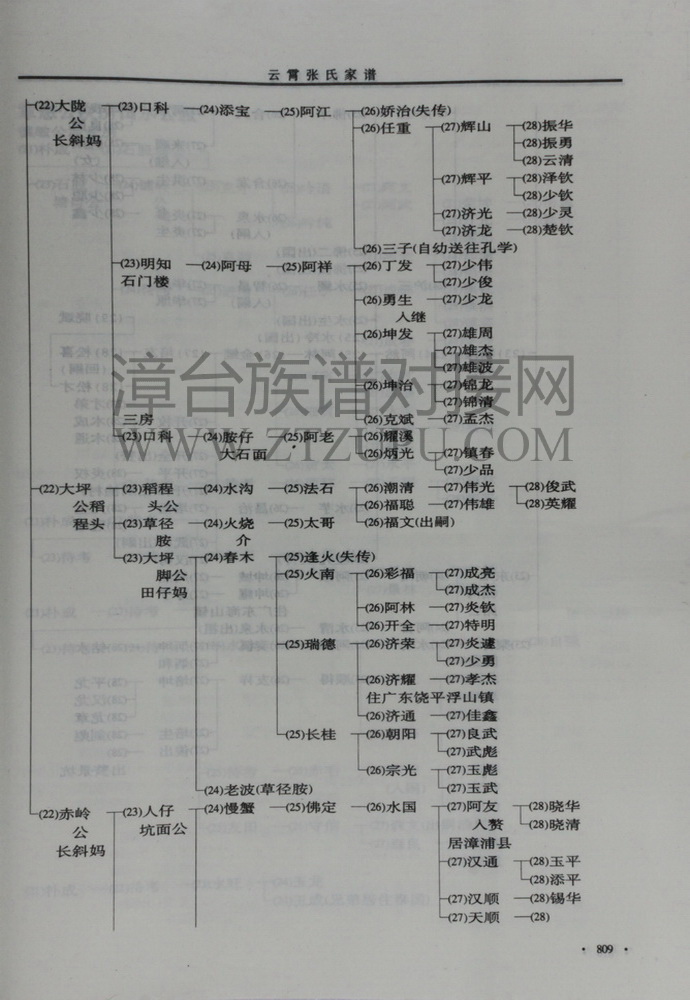 云霄张氏家谱
(22)大陇 (23)口科 (24)添宝 (25)阿江 (26)娇治(失传)
公 (26)任重 (27)辉山 (28)振华
长斜妈 (28)振勇
(28)云清
(27)辉平 (28)泽钦
(28)少钦
(27)济光 (28)少灵
(27)济龙 (28)楚钦
(26)三子(自幼送往孔学)
(23)明知 (24)阿母 (25)阿祥 (26)丁发 (27)少伟
石门楼 (27)少俊
(26)勇生 (27)少龙
人继
(26)坤发 (27)雄周
(27)雄杰
(27)雄波
(26)坤治 (27)锦龙
(27)锦清
三房 (26)克斌 (27)孟杰
(23)口科 (24)胺仔 (25)阿老 (26)耀溪
大石面 (26)炳光 (27)镇春
(27)少品
(22)大坪 (23)稻程 (24)水沟 (25)法石 (26)潮清 (27)伟光 (28)俊武
公稻 头公 (26)福聪 (27)伟雄 (28)英耀
程头 (23)草径 (24)火烧 (25)太哥 (26)福文(出嗣)
胺 介
(23)大坪 (24)春木 (25)逢火(失传)
脚公 (25)火南 (26)彩福 (27)成亮
田仔妈 (27)成杰
(26)阿林 (27)炎钦
(26)开全 (27)特明
(25)瑞德 (26)济荣 (27)炎遽
(27)少勇
(26)济耀 (27)孝杰
住广东饶平浮山镇
(26)济通 (27)佳鑫
(25)长桂 (26)朝阳 (27)良武
(27)武彪
(26)宗光 (27)玉彪
(27)玉武
(24)老波(草径胺)
(22)赤岭 (23)人仔 (24)慢蟹 (25)佛定 (26)水国 (27)阿友 (28)晓华
公 坑面公 入赘 (28)晓清
长斜妈 居漳浦县
(27)汉通 (28)玉平
(28)添平
(27)汉顺 (28)锡华
(27)天顺 (28)
· 809 ·
漳台族谱对接网
WWW.ZTZUPU.COM